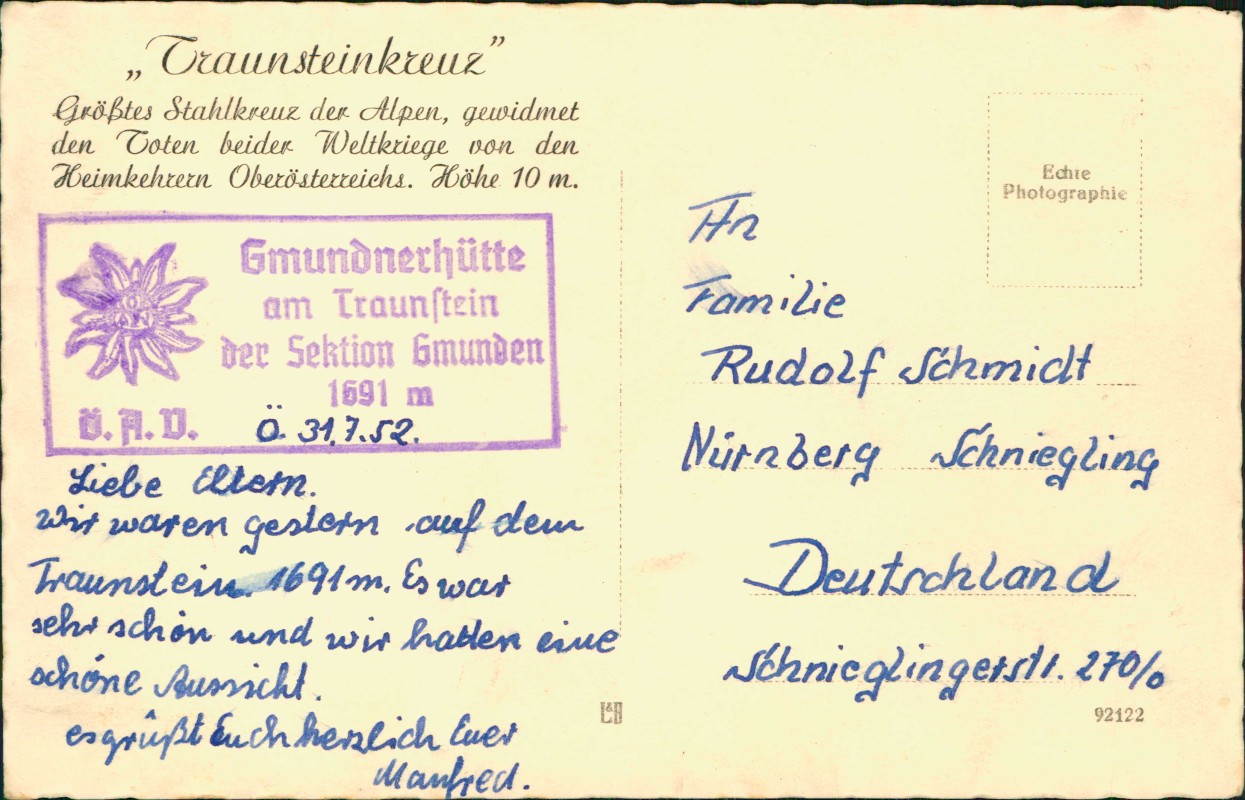 „Traunsteinkreuz”
Größtes Stahlkreuz der Alpen, gewidmet
den Toten beider Weltkriege von den
Heimkehrern Oberösterreichs. Höhe 10 m.
Gmundnerhütte
am Traunstein
der Sektion Gmunden
1691 m
Ö.A.V.
Ö. 31.7.52.
Liebe Eltern.
Wir waren gestern auf dem
Traunstein. 1691 m. Es war
sehr schön und wir hatten eine
schöne Aussicht.
es grüßt Euch herzlich Euer
Manfred.
Echte
Photographie
An
Familie
Rudolf Schmidt
Nürnberg Schniegling
Deutschland
Schnieglingerstr. 270/0
L&B
92122